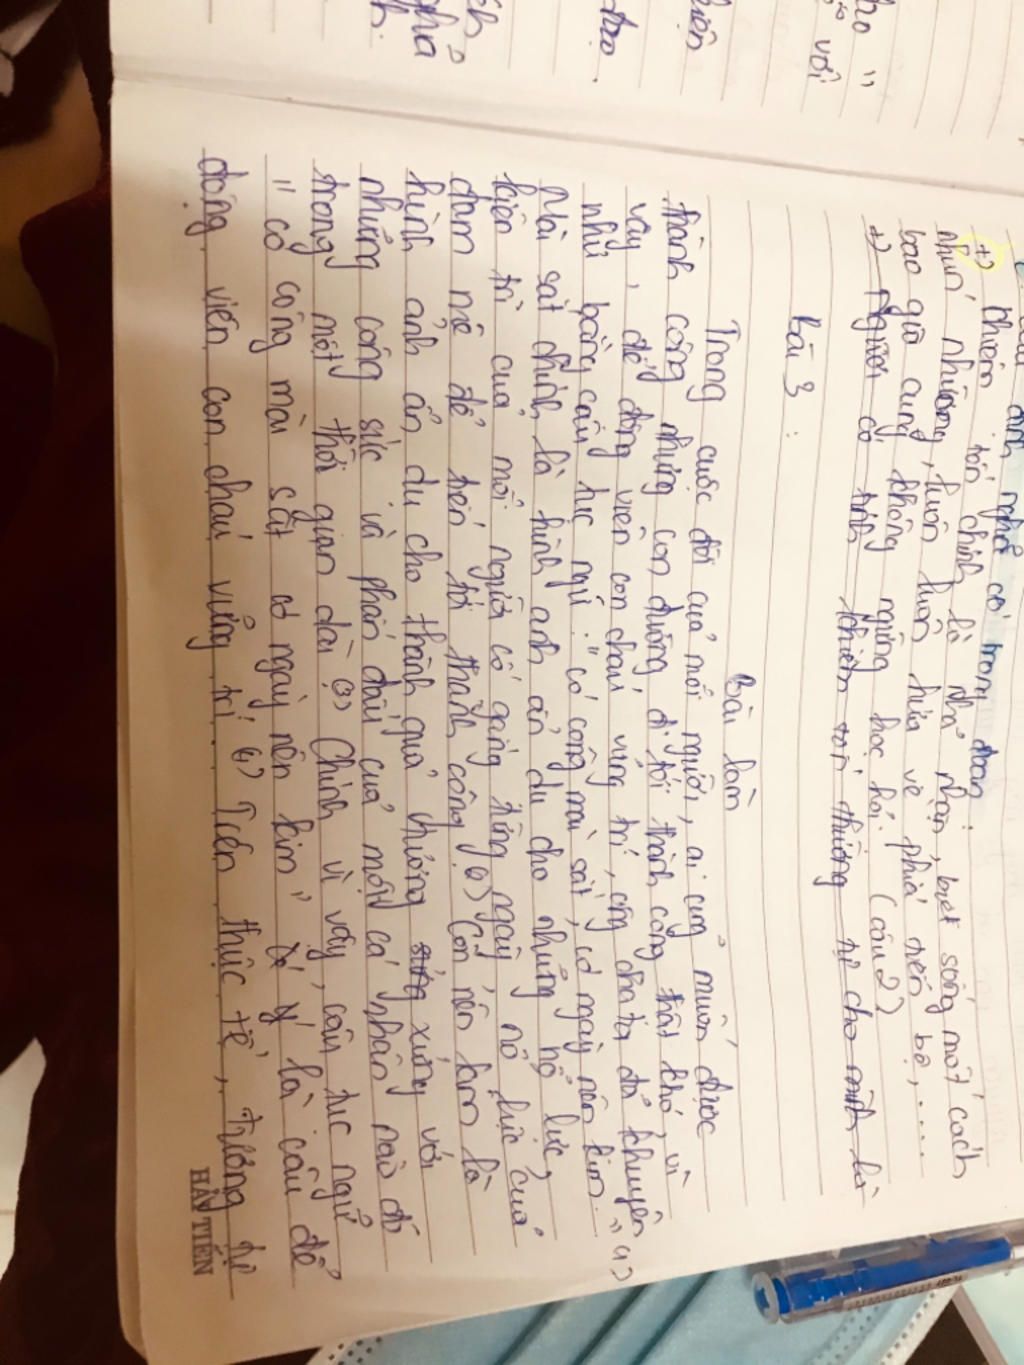 +) Khiêm tốn chính là nhã nhặn, biết sống một cách
nhún nhường, luôn luôn hứa về phía
bao giờ cũng không ngừng học hỏi. (câu 2)
+) Người có tính khiêm tốn thường tự cho mình là
Bài 3 :
Bài làm
Trong cuộc đời của mỗi người, ai cũng muốn được
thành công nhưng con đường đi tới thành công thật khó, vì
vậy, để động viên con cháu vững trí, ông cha ta đã khuyên
nhủ bằng câu tục ngữ : "có công mài sắt, có ngày nên kim." (1)
Mài sắt chính là hình ảnh ẩn dụ cho những nỗ lực,
kiên trì của mỗi người cố gắng từng ngày, nỗ lực của
đam mê để tiến tới thành công. (2) Còn, nên kim là
hình ảnh ẩn dụ cho thành quả xứng với
những công sức và phấn đấu của một cá nhân nào đó
trong một thời gian dài. (3) Chính vì vậy, câu tục ngữ
" có công mài sắt có ngày nên kim" có ý là câu để
động viên con cháu vững trí. (4) Trên thực tế, tương tự
HẢI TIẾN